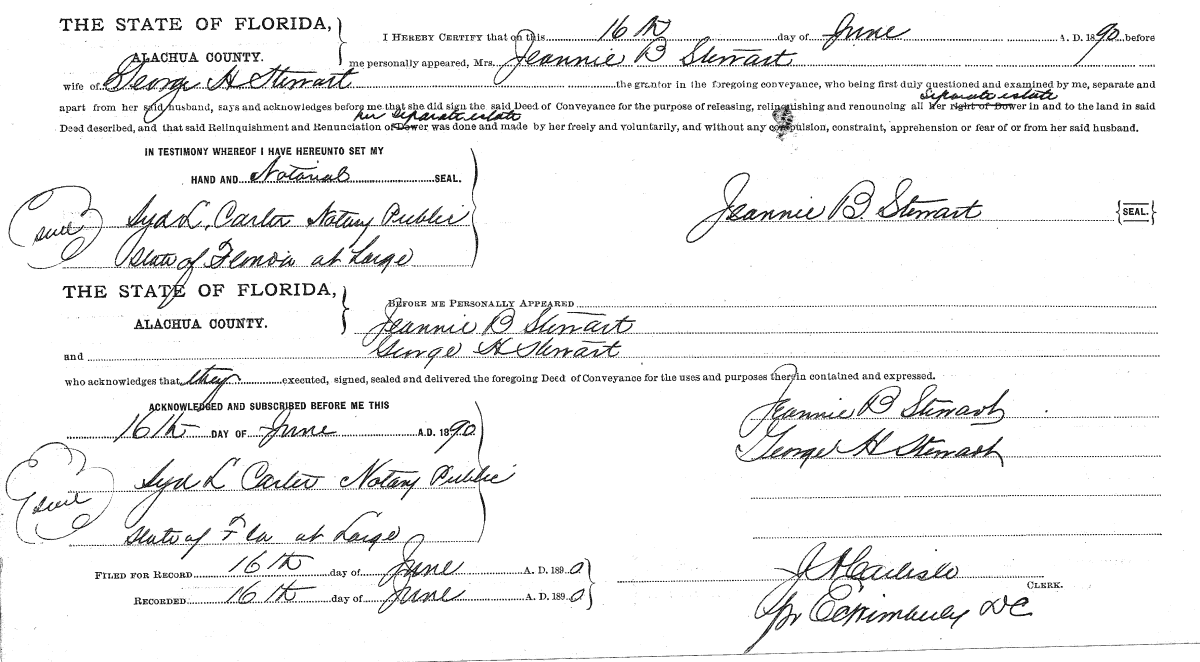 THE STATE OF FLORIDA,
ALACHUA COUNTY.
I HEREBY CERTIFY that on this 16th day of June A. D. 1890 before
me personally appeared, Mrs. Jeannie B Stewart
wife of George H Stewart the grantor in the foregoing conveyance, who being first duly questioned and examined by me, separate and
Separate estate
apart from her said husband, says and acknowledges before me that she did sign the said Deed of Conveyance for the purpose of releasing, relinquishing and renouncing all her right of Dower in and to the land in said
her separate estate
Deed described, and that said Relinquishment and Renunciation of Dower was done and made by her freely and voluntarily, and without any compulsion, constraint, apprehension or fear of or from her said husband.
IN TESTIMONY WHEREOF I HAVE HEREUNTO SET MY
HAND AND Notarial SEAL.
Syd L. Carter Notary Public
seal
State of Florida at Large
Jeannie B. Stewart {SEAL.}
THE STATE OF FLORIDA,
ALACHUA COUNTY.
BEFORE ME PERSONALLY APPEARED
Jeannie B Stewart
and George H Stewart
who acknowledges that they executed, signed, sealed and delivered the foregoing Deed of Conveyance for the uses and purposes therein contained and expressed.
ACKNOWLEDGED AND SUBSCRIBED BEFORE ME THIS
16th DAY OF June A.D. 1890
Jeannie B Stewart
George H Stewart
Syd L Carter Notary Public
seal
State of Fla at Large
FILED FOR RECORD 16th day of June A. D. 1890
RECORDED 16th day of June A. D. 1890
J A Carlisle
CLERK.
pr E C Wimberly DC